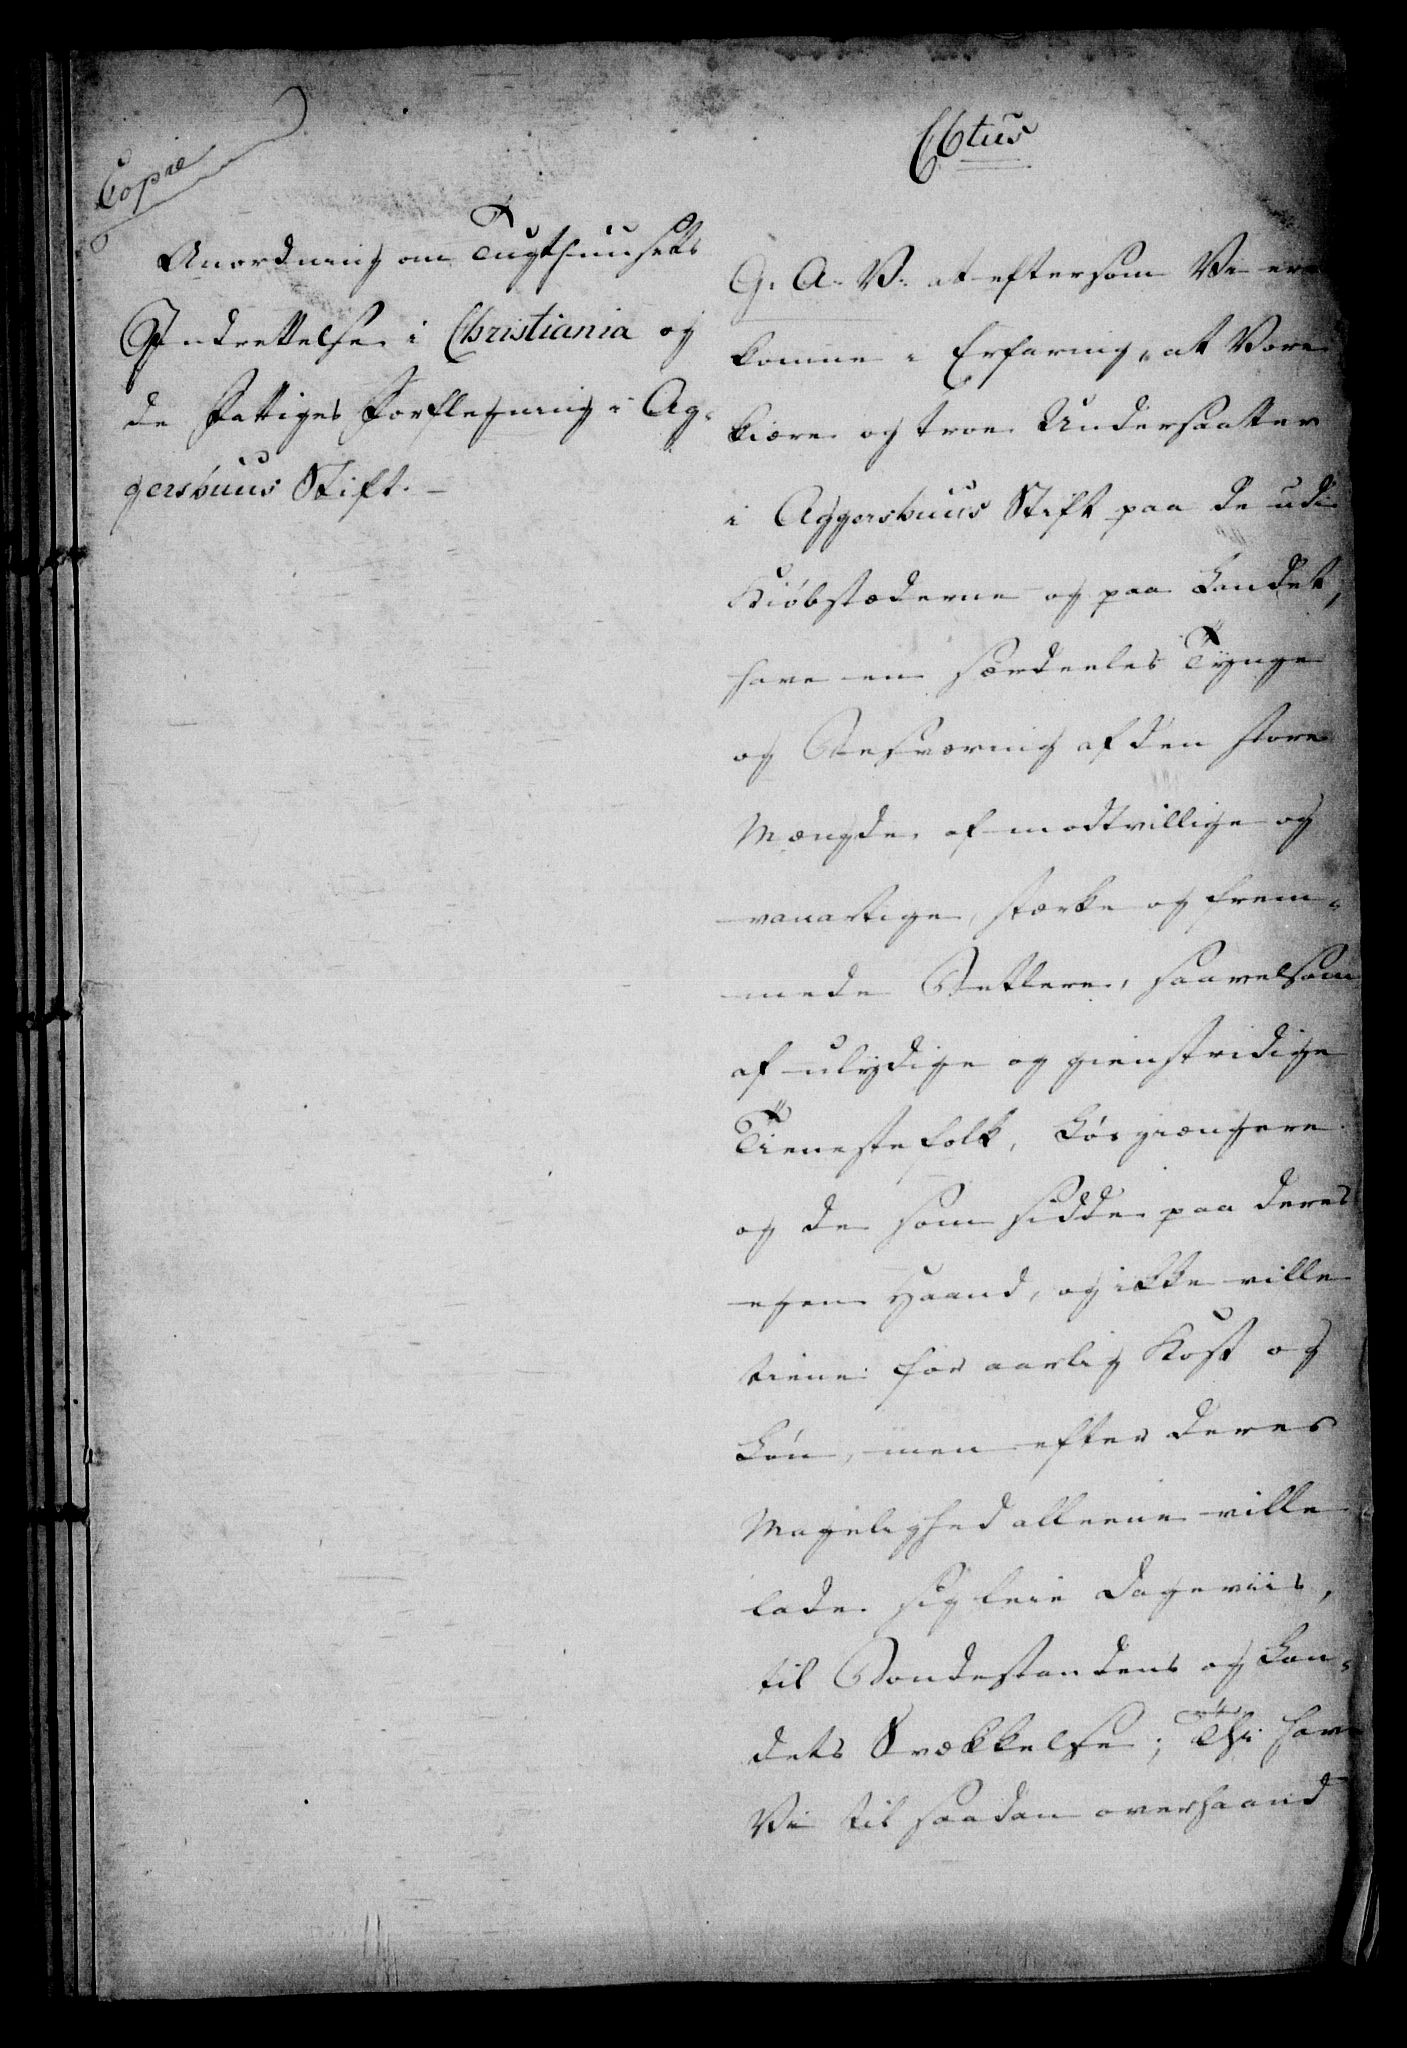 Copie
Anordning om Tugthuusets
Indrettelse i Christiania og
de Fattiges Forflegning i Ag-
gershuus Stift. –
C6tus
G. A. V. at eftersom Vi ere
komne i Erfaring, at Vore
kiære og troe Undersaatter
i Aggershuus Stift paa de udi
Kiøbstæderne og paa Landet,
have en særdeeles Tynge
og Besværing af den store
Mængde af modtvillige og
vanartige, stærke og frem-
mede Betlere, saavelsom
af ulydige og gienstridige
Tienestefolk, Løsgiængere
og de som sidde paa deres
egen Haand, og ikke ville
tiene for aarlig Kost og
Løn, men efter deres
Magelighed alleene ville
lade sig leie dageviis,
til Bondestandens og Lan-
dets Svækkelse; Thi have
Vi til saadan overhaand